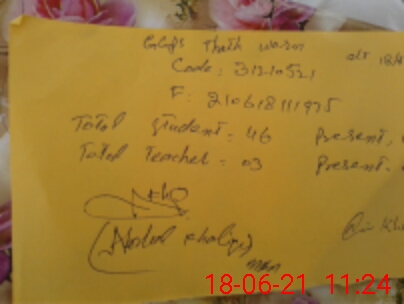 GGPS Thath waron dt 18/6
Code: 31210521
F: 210618111975
Total Student = 46 Present,
Total teacher = 03 Present.
(Abdul Khaliq)
18-06-21 11:24